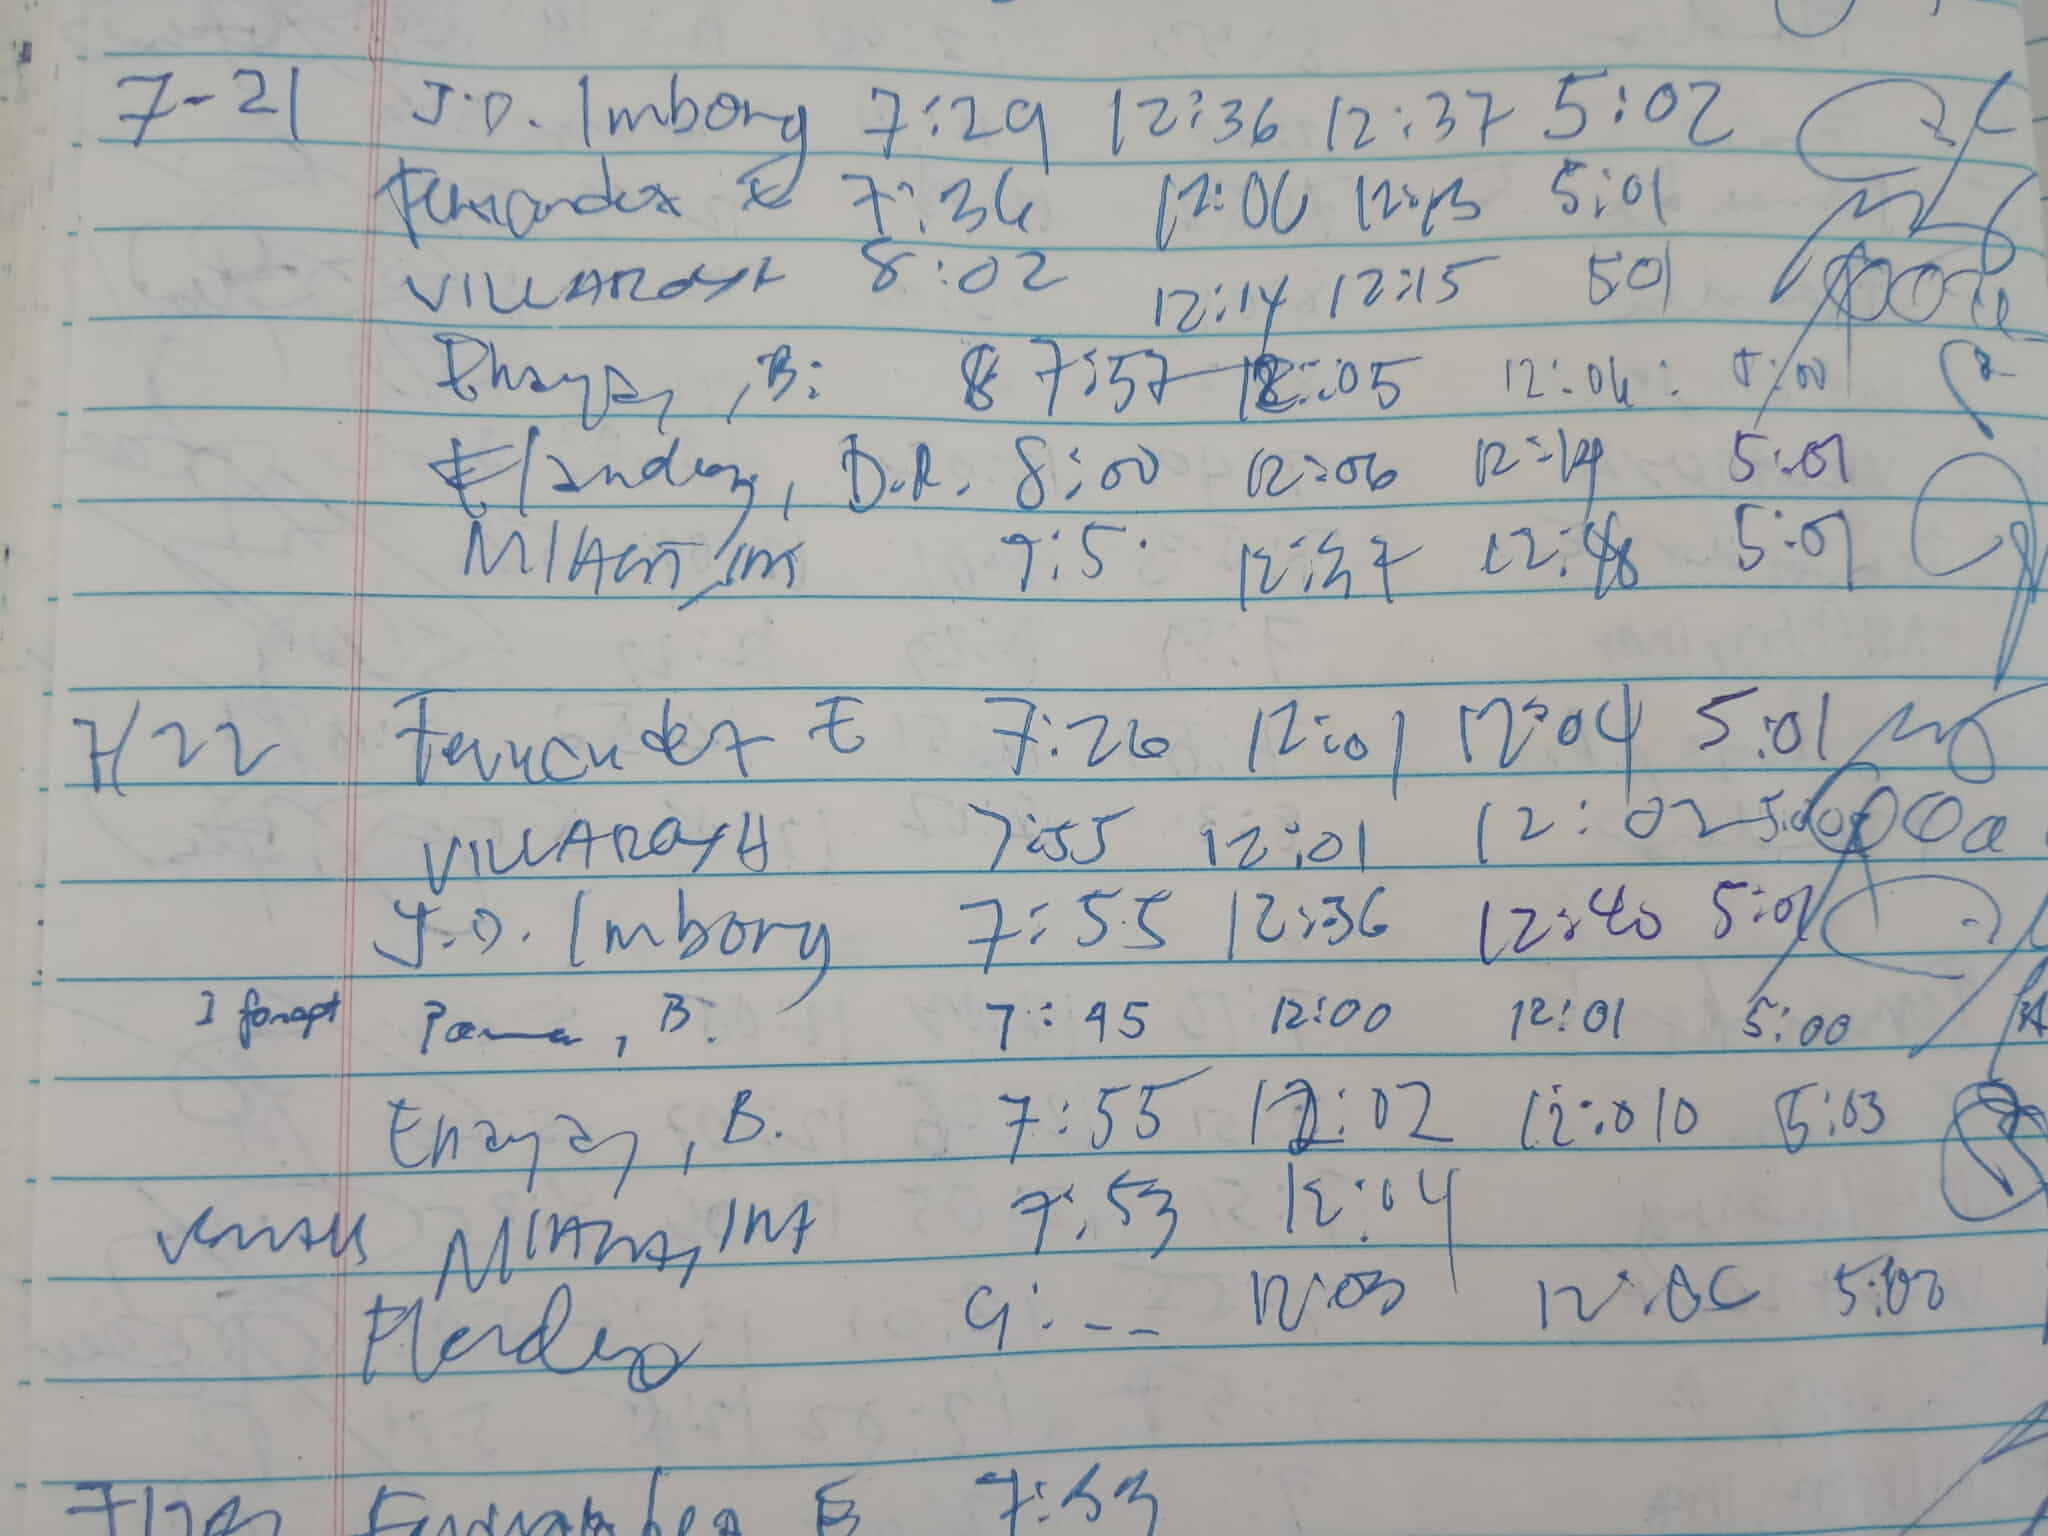 7-21 J.D. Imbong 7:29 12:36 12:37 5:02
Fernandez E 7:36 12:06 12:13 5:01
VILLAROYA 8:02 12:14 12:15 501
Enayan, B. 7:57 12:05 12:06 5:00
Elandag, D.R. 8:00 12:06 12:14 5:01
12:37 12:48 5:01
7/22 Fernandez E 7:26 12:01 12:04 5:01
VILLAROYA 7:55 12:01 12:02 5:00
J.D. Imbong 7:55 12:36 12:40 5:01
I forgot B. 7:45 12:00 12:01 5:00
Enayan, B. 7:55 12:02 12:010 5:03
7:53 12:04
9:-- 12:03 5:03
Fernandez E 7:33